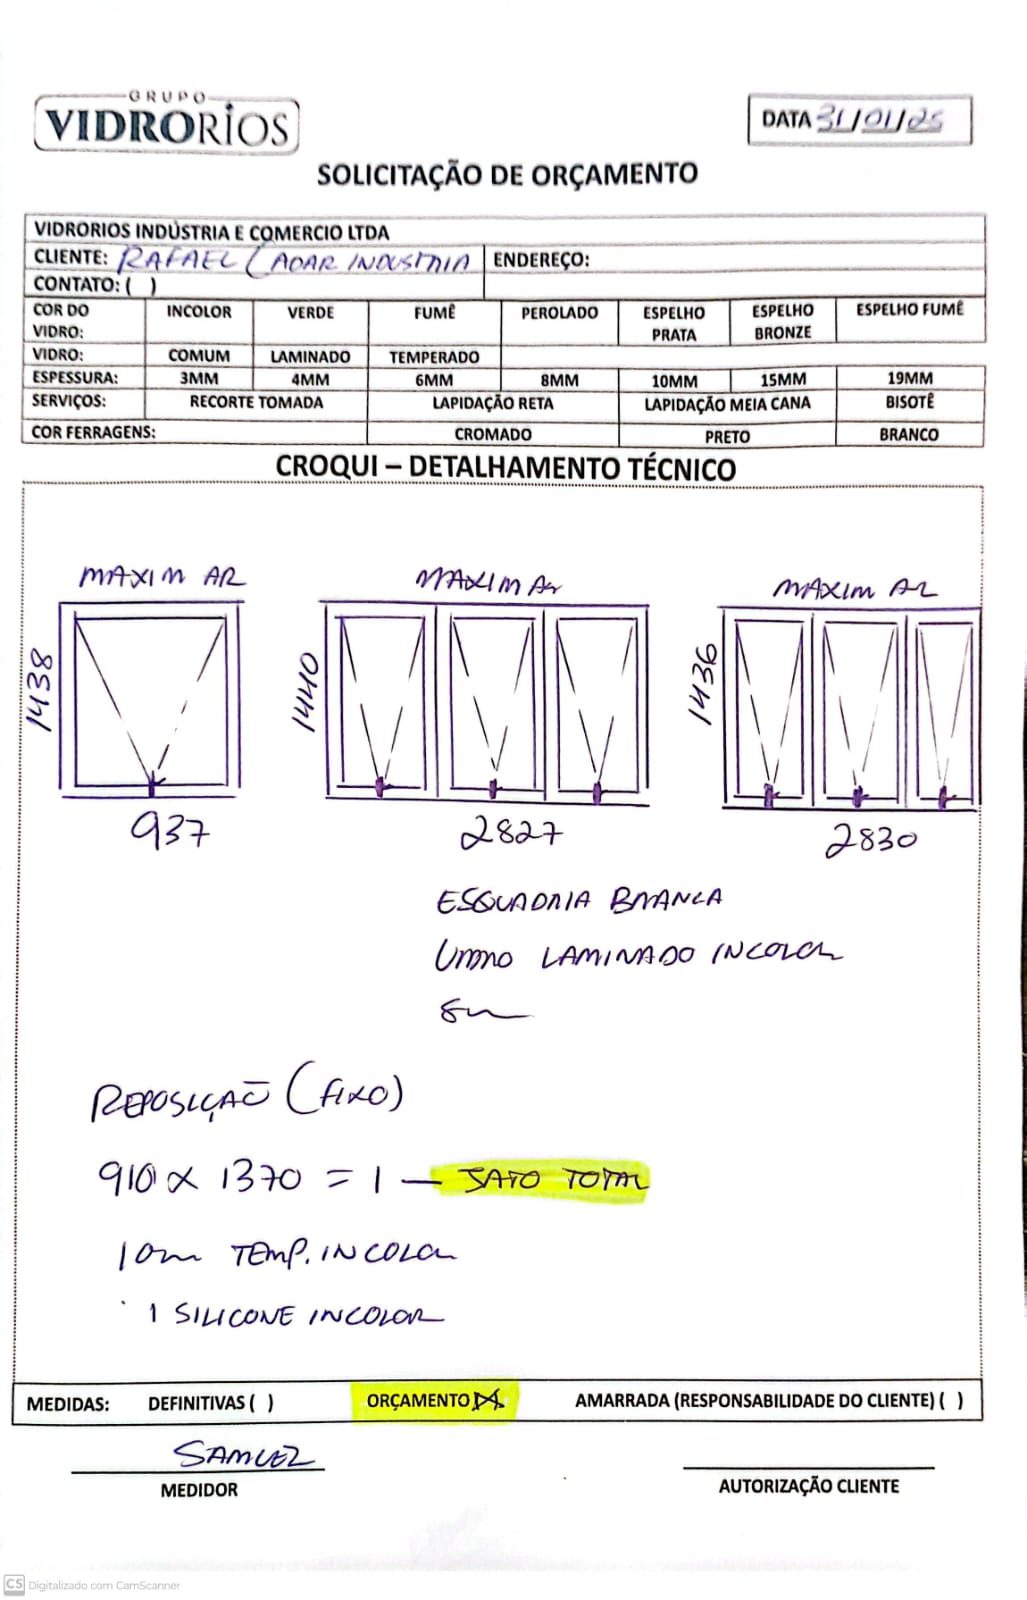 GRUPO
VIDRORIOS
DATA 31/01/25
SOLICITAÇÃO DE ORÇAMENTO
VIDRORIOS INDÚSTRIA E COMERCIO LTDA
CLIENTE: RAFAEL ( ADAR INDUSTRIA
ENDEREÇO:
CONTATO: ( )
COR DO VIDRO: INCOLOR VERDE FUMÊ PEROLADO ESPELHO PRATA ESPELHO BRONZE ESPELHO FUMÊ
VIDRO: COMUM LAMINADO TEMPERADO
ESPESSURA: 3MM 4MM 6MM 8MM 10MM 15MM 19MM
SERVIÇOS: RECORTE TOMADA LAPIDAÇÃO RETA LAPIDAÇÃO MEIA CANA BISOTÊ
COR FERRAGENS: CROMADO PRETO BRANCO
CROQUI – DETALHAMENTO TÉCNICO
MAXIM AR MAXIM Ar MAXIM AR
1438 1440 1436
937 2827 2830
ESQUADRIA BRANCA
VIDRO LAMINADO INCOLOR
8m
REPOSIÇAÕ (FIXO)
910 X 1370 = 1 — JATO TOTAL
10m TEMP. INCOLOR
1 SILICONE INCOLOR
MEDIDAS: DEFINITIVAS ( ) ORÇAMENTO (X) AMARRADA (RESPONSABILIDADE DO CLIENTE) ( )
SAMUEL
MEDIDOR
AUTORIZAÇÃO CLIENTE
CS Digitalizado com CamScanner